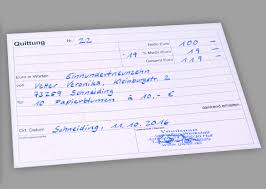 Quittung Nr. 22 Netto Euro 100 —
19 % MwSt./Euro 19 —
Gesamt Euro 119 —
Euro in Worten Einhundertneunzehn
von Vetter Veronika, Kleinburgstr. 2
93259 Schneiding
für 10 Papierblumen à 10,- €
dankend erhalten.
Ort, Datum Schneiding, 11.10.2016